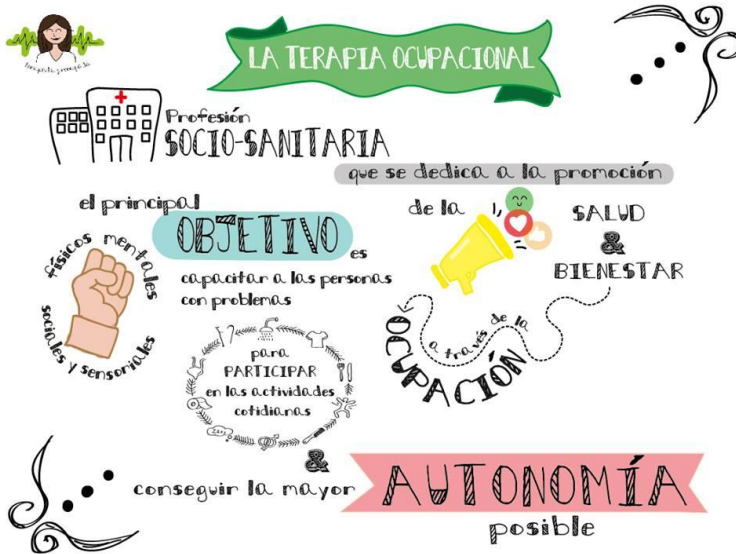 LA TERAPIA OCUPACIONAL
Profesión
SOCIO-SANITARIA
que se dedica a la promoción
de la
SALUD
&
BIENESTAR
a través de la
OCUPACIÓN
el principal
OBJETIVO
es
capacitar a las personas
con problemas
físicos mentales
sociales y sensoriales
para
PARTICIPAR
en las actividades
cotidianas
&
conseguir la mayor
AUTONOMÍA
posible